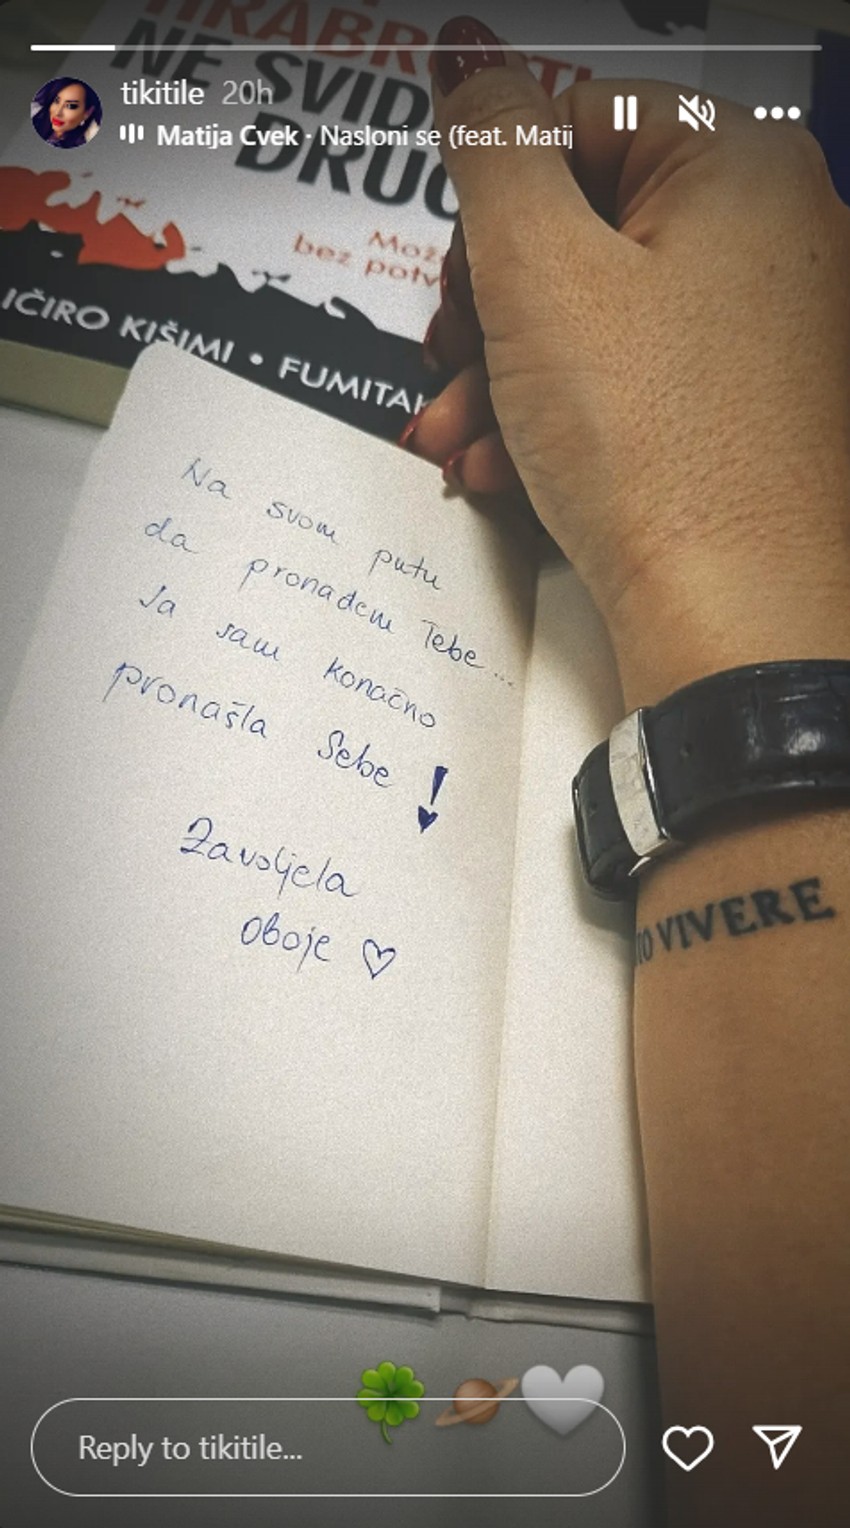 HRABROSTI
NE SVID
DRUG
tikitile 20h
Matija Cvek · Nasloni se (feat. Matij
Mož
bez potv
IČIRO KIŠIMI • FUMITAK
Na svom putu
da pronađem Tebe...
Ja sam konačno
pronašla Sebe !
Zavoljela
oboje ♡
TO VIVERE
Reply to tikitile...